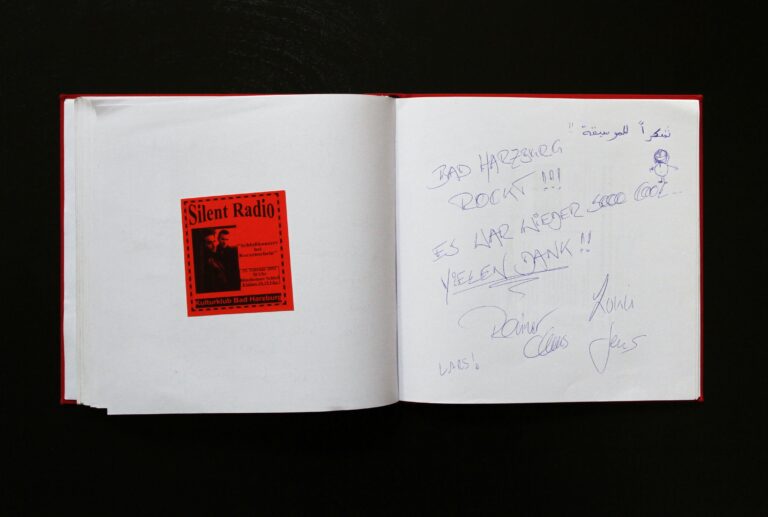 Silent Radio
"Schloßkonzert
bei
Kerzenschein"
20 Uhr
Kulturklub Bad Harzburg
شكراً للموسيقة !!
BAD HARZBURG
ROCKT !!!
ES WAR WIEDER SOOO COOL...
VIELEN DANK !!
Rainer
Claus
Jens
LARS!